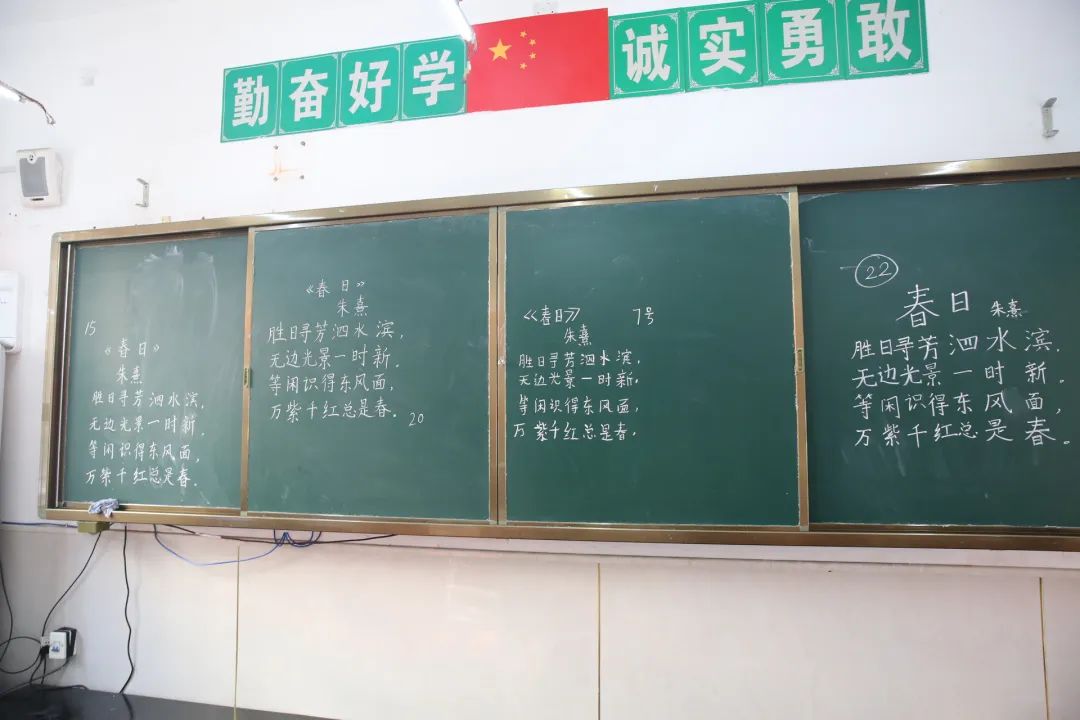 勤奋好学 诚实勇敢
15
《春日》
朱熹
胜日寻芳泗水滨,
无边光景一时新.
等闲识得东风面,
万紫千红总是春.
《春日》
朱熹
胜日寻芳泗水滨,
无边光景一时新.
等闲识得东风面,
万紫千红总是春.
20
《春日》 7号
朱熹
胜日寻芳泗水滨,
无边光景一时新,
等闲识得东风面,
万紫千红总是春,
22
春日 朱熹
胜日寻芳泗水滨.
无边光景一时新.
等闲识得东风面,
万紫千红总是春.